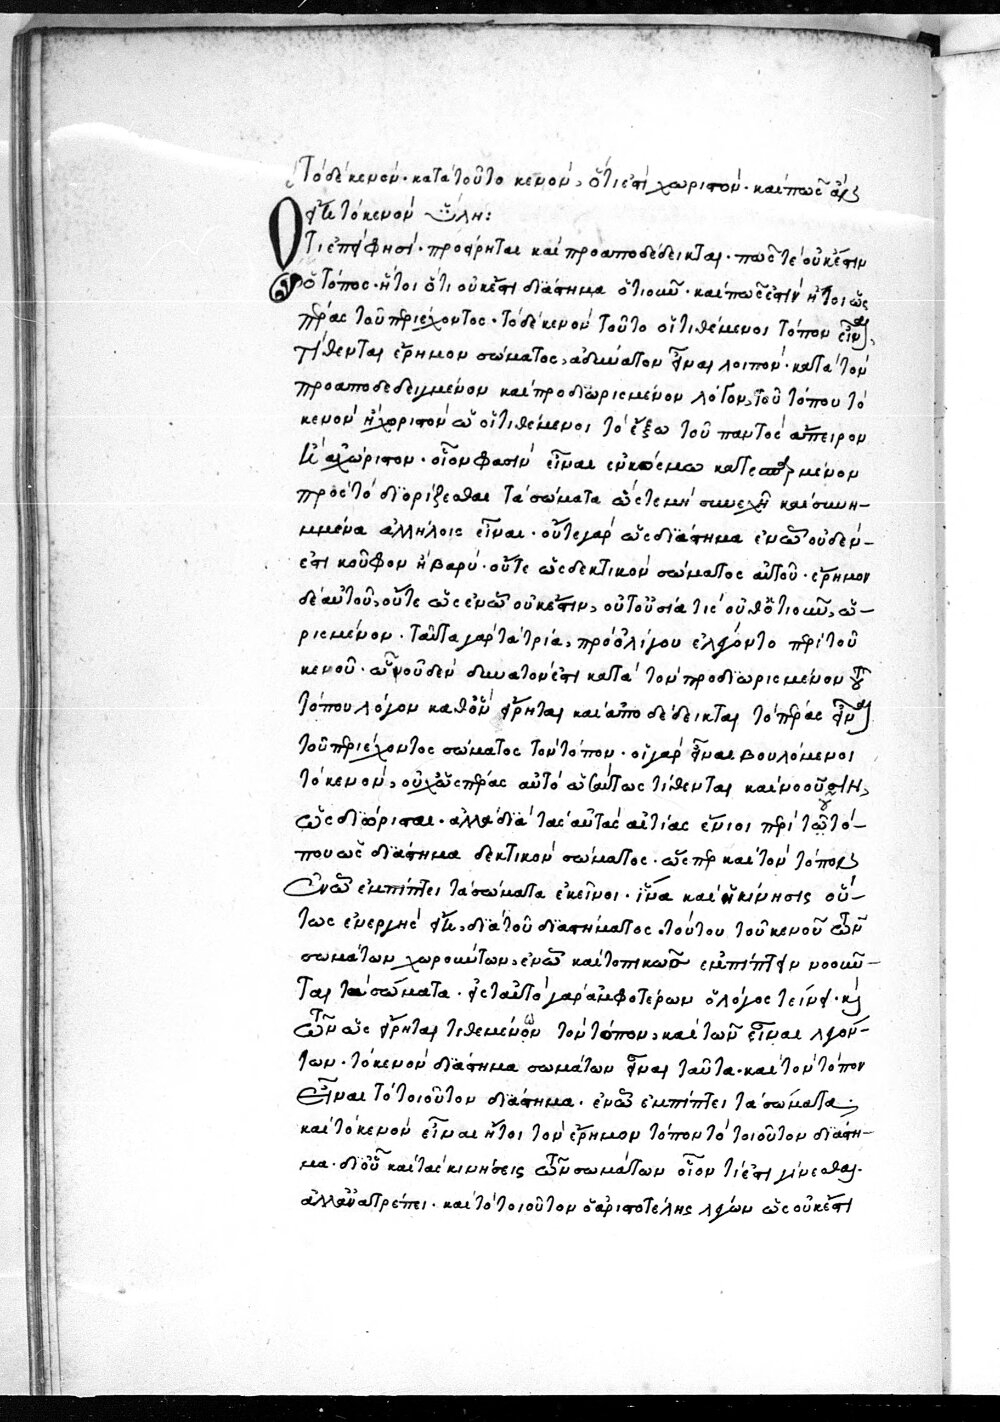 Τὸ δὲ κενὸν. κατὰ τοῦτο κενὸν, ὅτι ἐστὶ χωριστὸν. καὶ πῶς
τὸ κενὸν ὕλη:
Ὅτι φησί. προείρηται καὶ προαποδέδεικται. πῶς τὲ οὐκ ἔστιν
ὁ τόπος. ἤτοι ὅτι οὐκ ἔστι διάστημα ὁτιοῦν. καὶ πῶς ἐστὶν ἤτοι ὡς
πέρας τοῦ περιέχοντος. τὸ δὲ κενὸν τοῦτο οἱ τιθέμενοι τόπον εἶναι,
τίθενται ἔρημον σώματος, ἀδύνατον εἶναι λοιπὸν. κατὰ τὸν
προαποδεδειγμένον καὶ προδιωρισμένον λόγον, τοῦ τόπου τὸ
κενὸν ἢ χωριστὸν ὡς οἱ τιθέμενοι τὸ ἔξω τοῦ παντὸς ἄπειρον
ἢ ἀχώριστον. οἷον φασὶν εἶναι ἐν κόσμω κατεσπαρμένον
πρὸς τὸ διορίζεσθαι τὰ σώματα ὥστε μὴ συνεχῆ καὶ συνη-
μμένα ἀλλήλοις εἶναι. οὔτε γὰρ ὡς διάστημα ἐν ὧ οὐδέν
ἐστι κοῦφον ἢ βαρύ. οὔτε ὡς δεκτικὸν σώματος αὐτοῦ. ἔρημον
δὲ αὐτοῦ, οὔτε ὡς ἐν ὧ οὐκ ἔστιν, οὐτουσία τις οὐθοτιοῦν, ὡ-
ρισμένον. ταῦτα γὰρ τὰ τρία, πρὸ ὀλίγου ἐλέγοντο περὶ τοῦ
κενοῦ. ὧν οὐδὲν δυνατὸν ἐστι κατὰ τὸν προδιωρισμένον τοῦ
τόπου λόγον καθ' ὃν εἴρηται καὶ ἀποδέδεικται τὸ πέρας εἶναι
τοῦ περιέχοντος σώματος τὸν τόπον. οἱ γὰρ εἶναι βουλόμενοι
τὸ κενὸν, οὐχ ὡς πέρας αὐτὸ οὕτως τίθενται καὶ νοοῦσιν,
ὡς διώρισται. ἀλλὰ διὰ τὰς αὐτὰς αἰτίας ἔνιοι περὶ τοῦ τό-
που ὡς διάστημα δεκτικὸν σώματος. ὥσπερ καὶ τὸν τόπον
ἐν ὧ ἐμπίπτει τὰ σώματα ἐκεῖνοι. ἵνα καὶ ἡ κίνησις οὕ-
τως ἐνεργὴς, διὰ τοῦ διαστήματος. τούτου τοῦ κενοῦ τῶν
σωμάτων χωρούντων, ἐν ὧ καὶ τοπικῶς ἐμπίπτειν νοοῦν-
ται τὰ σώματα. εἰς ταυτὸ γὰρ ἀμφοτέρων ὁ λόγος τείνει. καὶ
τῶν ὡς εἴρηται τιθεμένων τὸν τόπον, καὶ τῶν εἶναι λεγόν-
των. τὸ κενὸν διάστημα σωμάτων εἶναι ταῦτα. καὶ τὸν τόπον
εἶναι τὸ τοιοῦτον διάστημα. ἐν ὧ ἐμπίπτει τὰ σώματα.
καὶ τὸ κενὸν εἶναι ἤτοι τὸν ἔρημον τόπον τὸ τοιοῦτον διάστη-
μα. δι' οὗ καὶ τὰς κινήσεις τῶν σωμάτων οἷόν τί ἐστι γίνεσθαι.
ἀλλ' ἀνατρέπει. καὶ τὸ τοιοῦτον ὁ ἀριστοτέλης λέγων ὡς οὐκ ἔστι